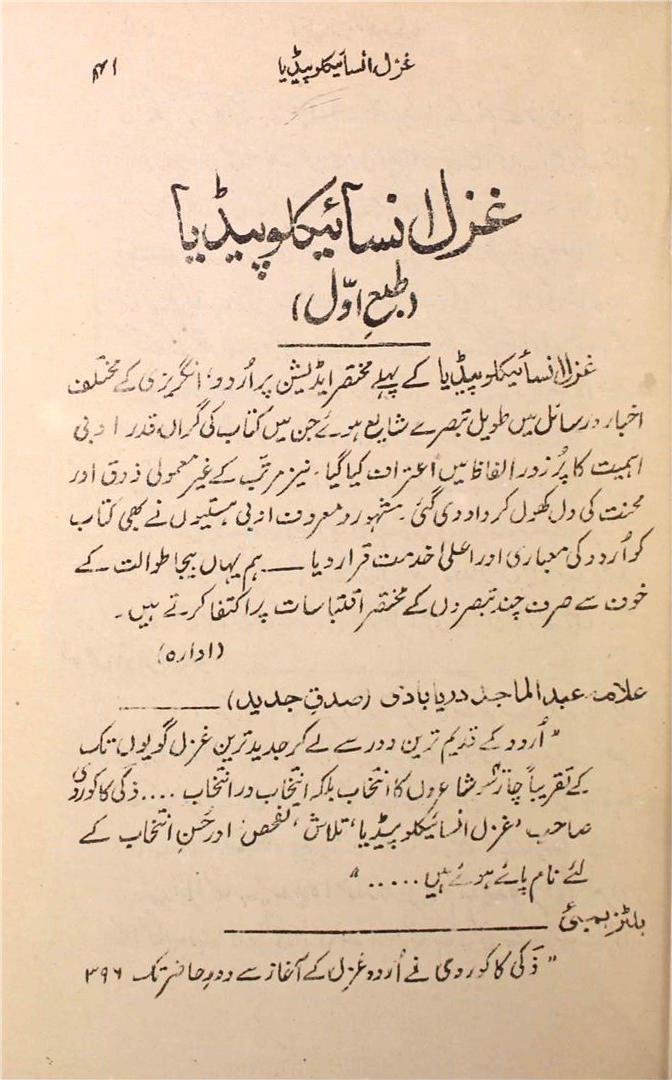 غزل انسائیکلوپیڈیا
غزل انسائیکلوپیڈیا
(طبعِ اوّل)
غزل انسائیکلوپیڈیا کے پہلے مختصر ایڈیشن پر اُردو، انگریزی کے مختلف
اخبار و رسائل میں طویل تبصرے شایع ہوئے جن میں کتاب کی گراں قدر ادبی
اہمیت کا پُر زور الفاظ میں اعتراف کیا گیا۔ نیز مرتب کے غیر معمولی ذوق اور
محنت کی دل کھول کر داد دی گئی۔ مشہور و معروف ادبی ہستیوں نے بھی کتاب
کو اُردو کی معیاری اور اعلیٰ خدمت قرار دیا ـــ ہم یہاں بیجا طوالت کے
خوف سے صرف چند تبصروں کے مختصر اقتباسات پر اکتفا کرتے ہیں۔
(ادارہ)
علامہ عبدالماجد دریابادی (صدقِ جدید) ـــــــــ
"اُردو کے قدیم ترین دور سے لے کر جدید ترین غزل گویوں تک
کے تقریباً چار سو شاعروں کا انتخاب بلکہ انتخاب در انتخاب .... ذکی کاکوروی
صاحب 'غزل انسائیکلوپیڈیا' تلاش، تفحص اور حُسنِ انتخاب کے
لئے نام پائے ہوئے ہیں ....."
بلٹز بمبئی ـــــــــ
"ذکی کاکوروی نے اُردو غزل کے آغاز سے دورِ حاضر تک ۳۹۶